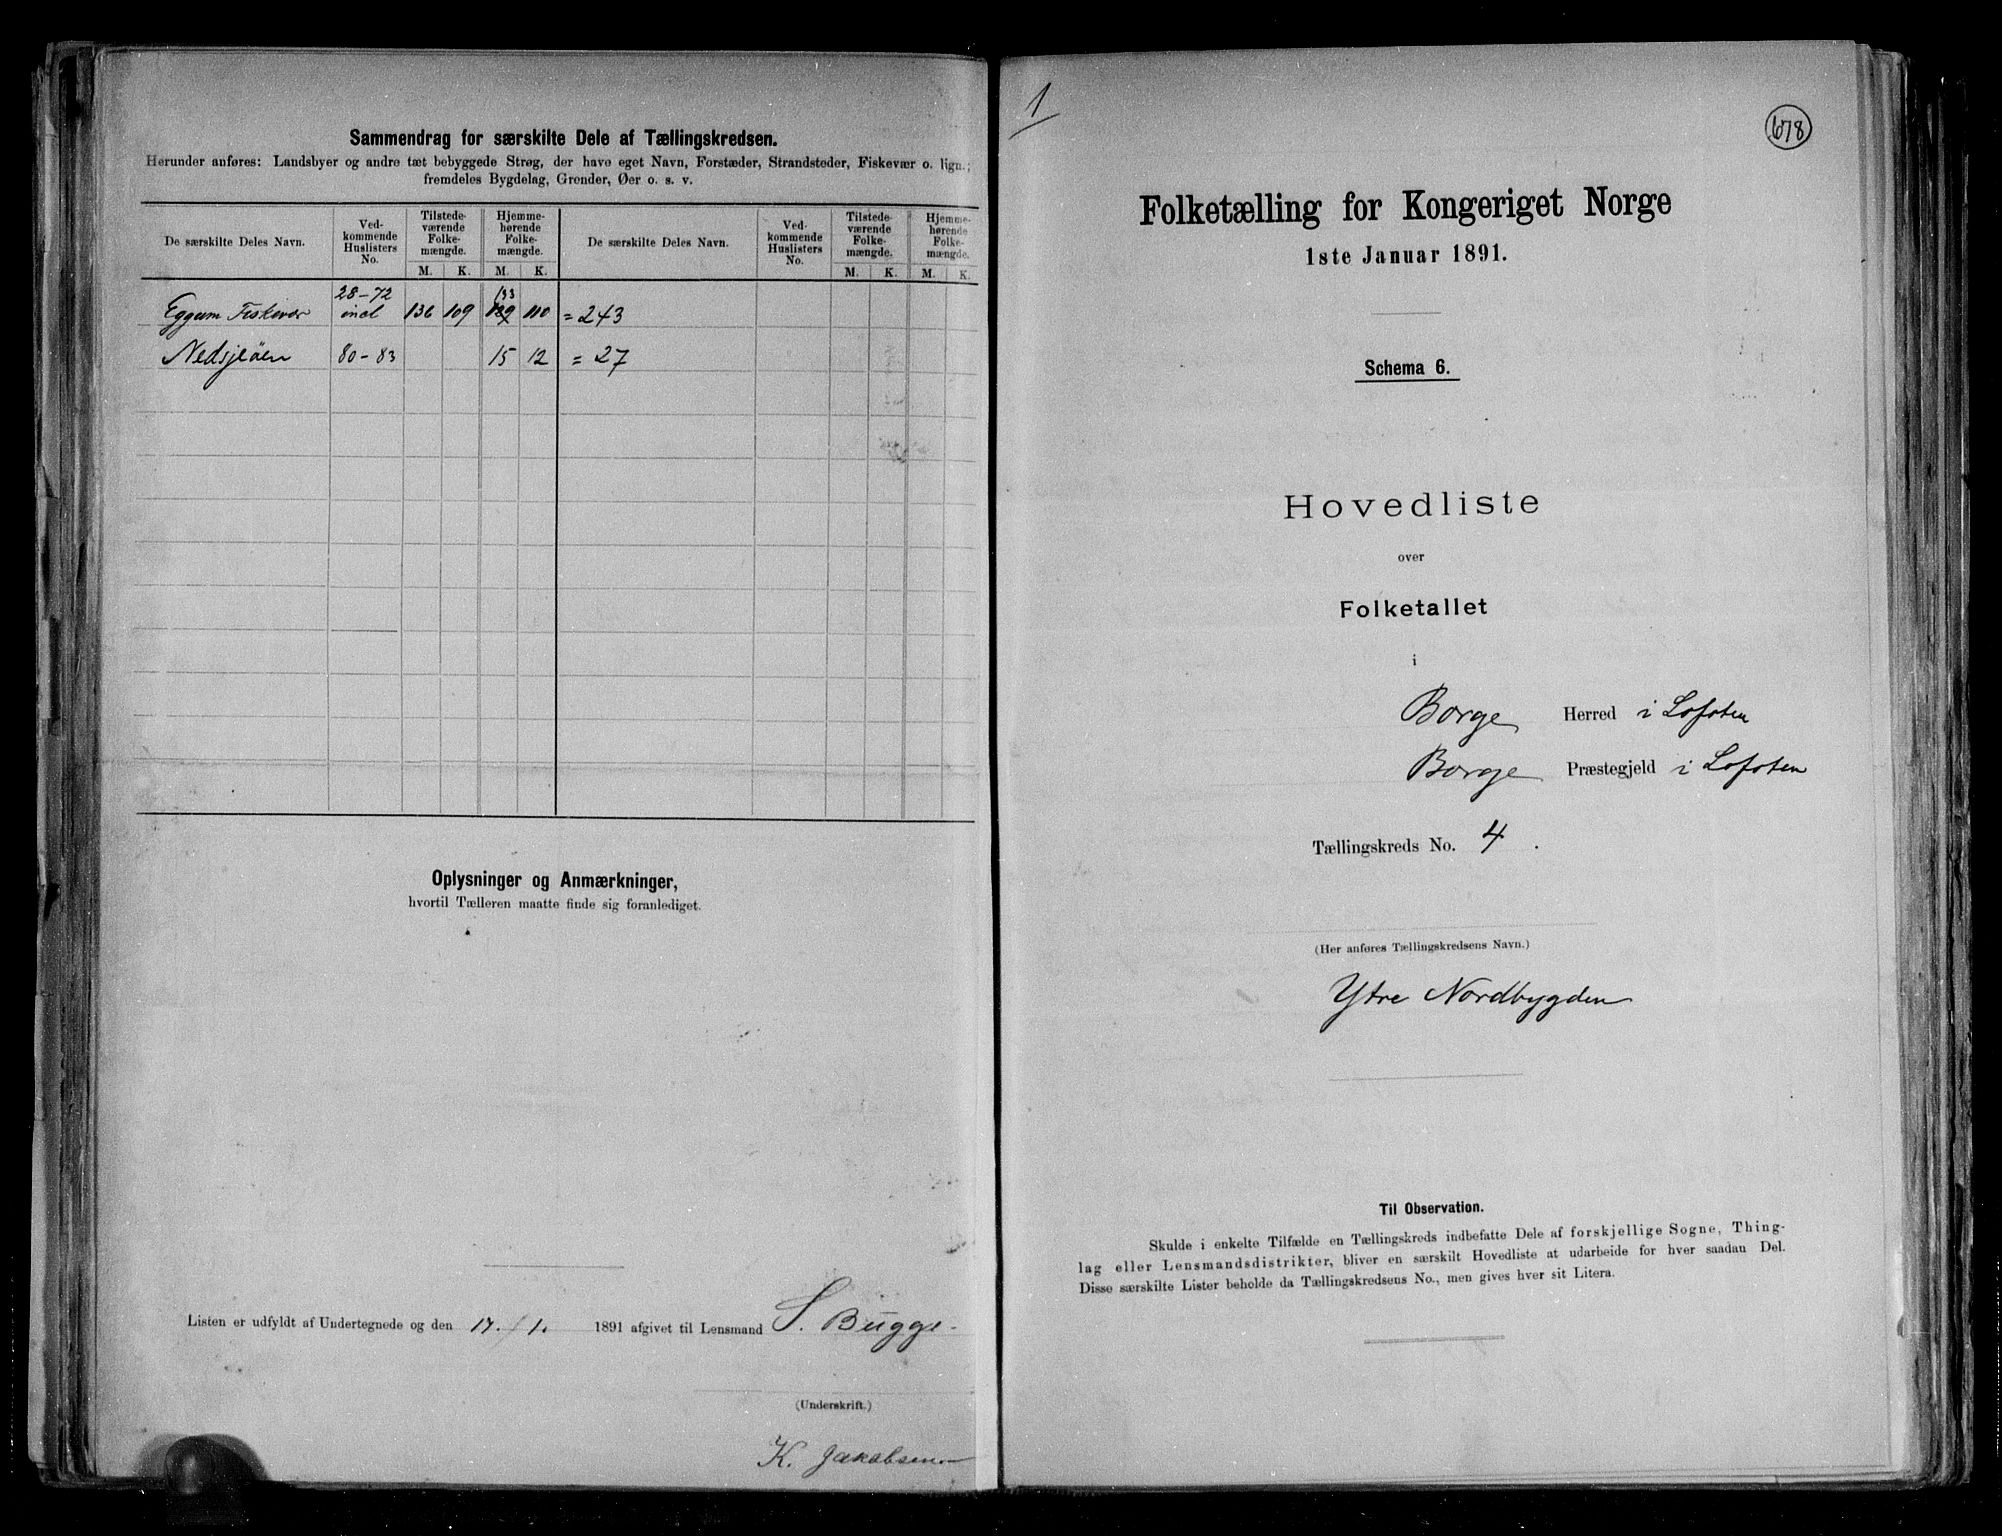 Sammendrag for særskilte Dele af Tællingskredsen.
Herunder anføres: Landsbyer og andre tæt bebyggede Strøg, der have eget Navn, Forstæder, Strandsteder, Fiskevær o. lign.;
fremdeles Bygdelag, Grender, Øer o. s. v.
De særskilte Deles Navn.
Ved-
kommende
Huslisters
No.
Tilstede-
værende
Folke-
mængde.
M. K.
Hjemme-
hørende
Folke-
mængde.
M. K.
De særskilte Deles Navn.
Ved-
kommende
Huslisters
No.
Tilstede-
værende
Folke-
mængde.
M. K.
Hjemme-
hørende
Folke-
mængde.
M. K.
28-72 133
Eggum Fiskevær incl 136 109 110 = 243
Nedsjeöen 80-83 15 12 = 27
Oplysninger og Anmærkninger,
hvortil Tælleren maatte finde sig foranlediget.
Listen er udfyldt af Undertegnede og den 17. / 1. 1891 afgivet til Lensmand S. Bugge.
(Underskrift.)
K. Jakobsen
1
678
Folketælling for Kongeriget Norge
1ste Januar 1891.
Schema 6.
Hovedliste
over
Folketallet
i
Borge Herred i Lofoten
Borge Præstegjeld i Lofoten
Tællingskreds No. 4.
(Her anføres Tællingskredsens Navn.)
Ytre Nordbygden
Til Observation.
Skulde i enkelte Tilfælde en Tællingskreds indbefatte Dele af forskjellige Sogne, Thing-
lag eller Lensmandsdistrikter, bliver en særskilt Hovedliste at udarbeide for hver saadan Del.
Disse særskilte Lister beholde da Tællingskredsens No., men gives hver sit Litera.